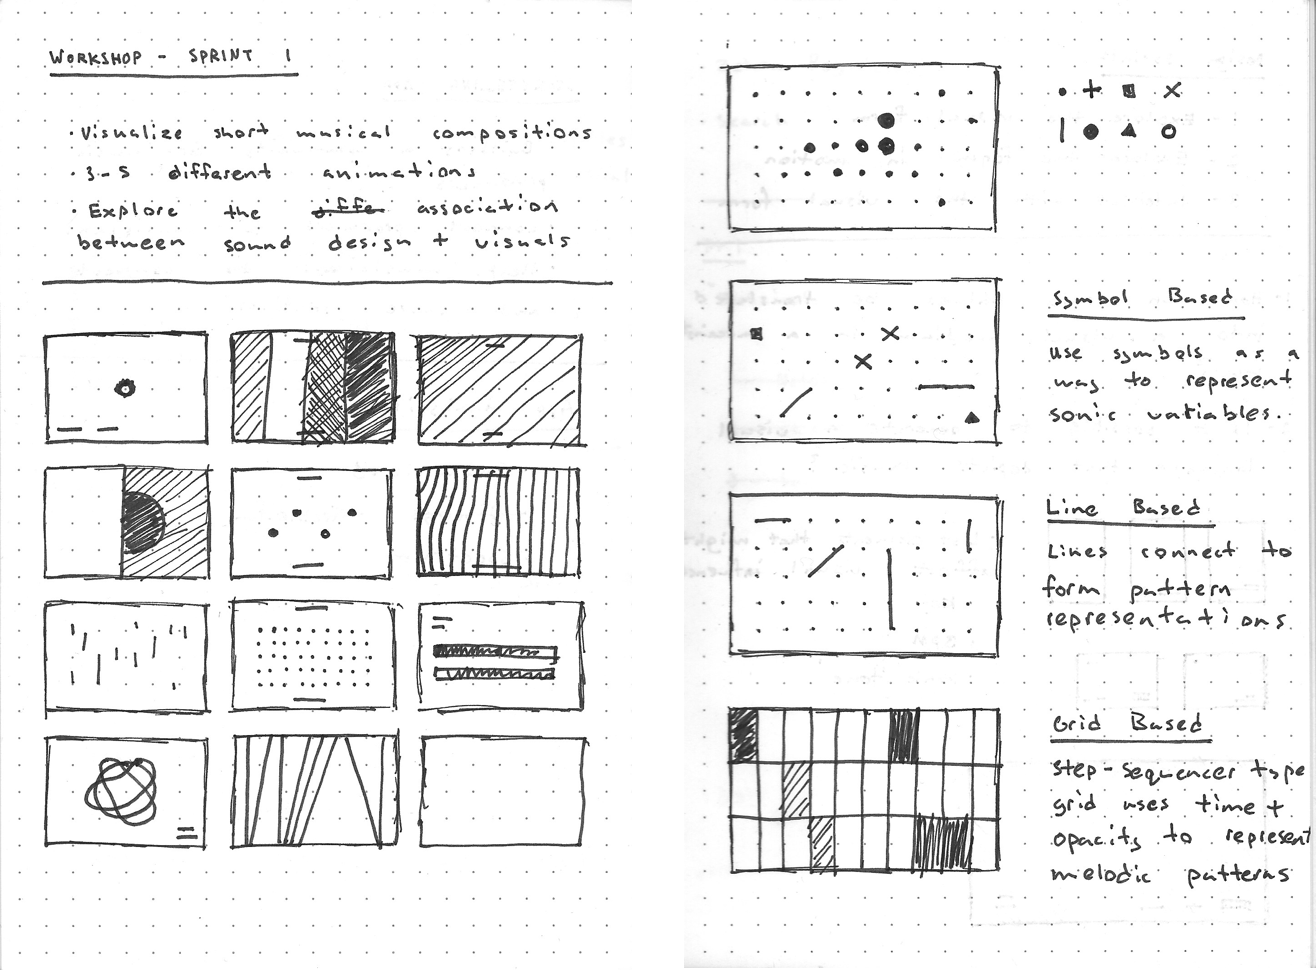 WORKSHOP - SPRINT 1
• Visualize short musical compositions
• 3-5 different animations
• Explore the diffe association
between sound design + visuals
Symbol Based
use symbols as a
way to represent
sonic variables.
Line Based
Lines connect to
form pattern
representations
Grid Based
Step-sequencer type
grid uses time +
opacity to represent
melodic patterns